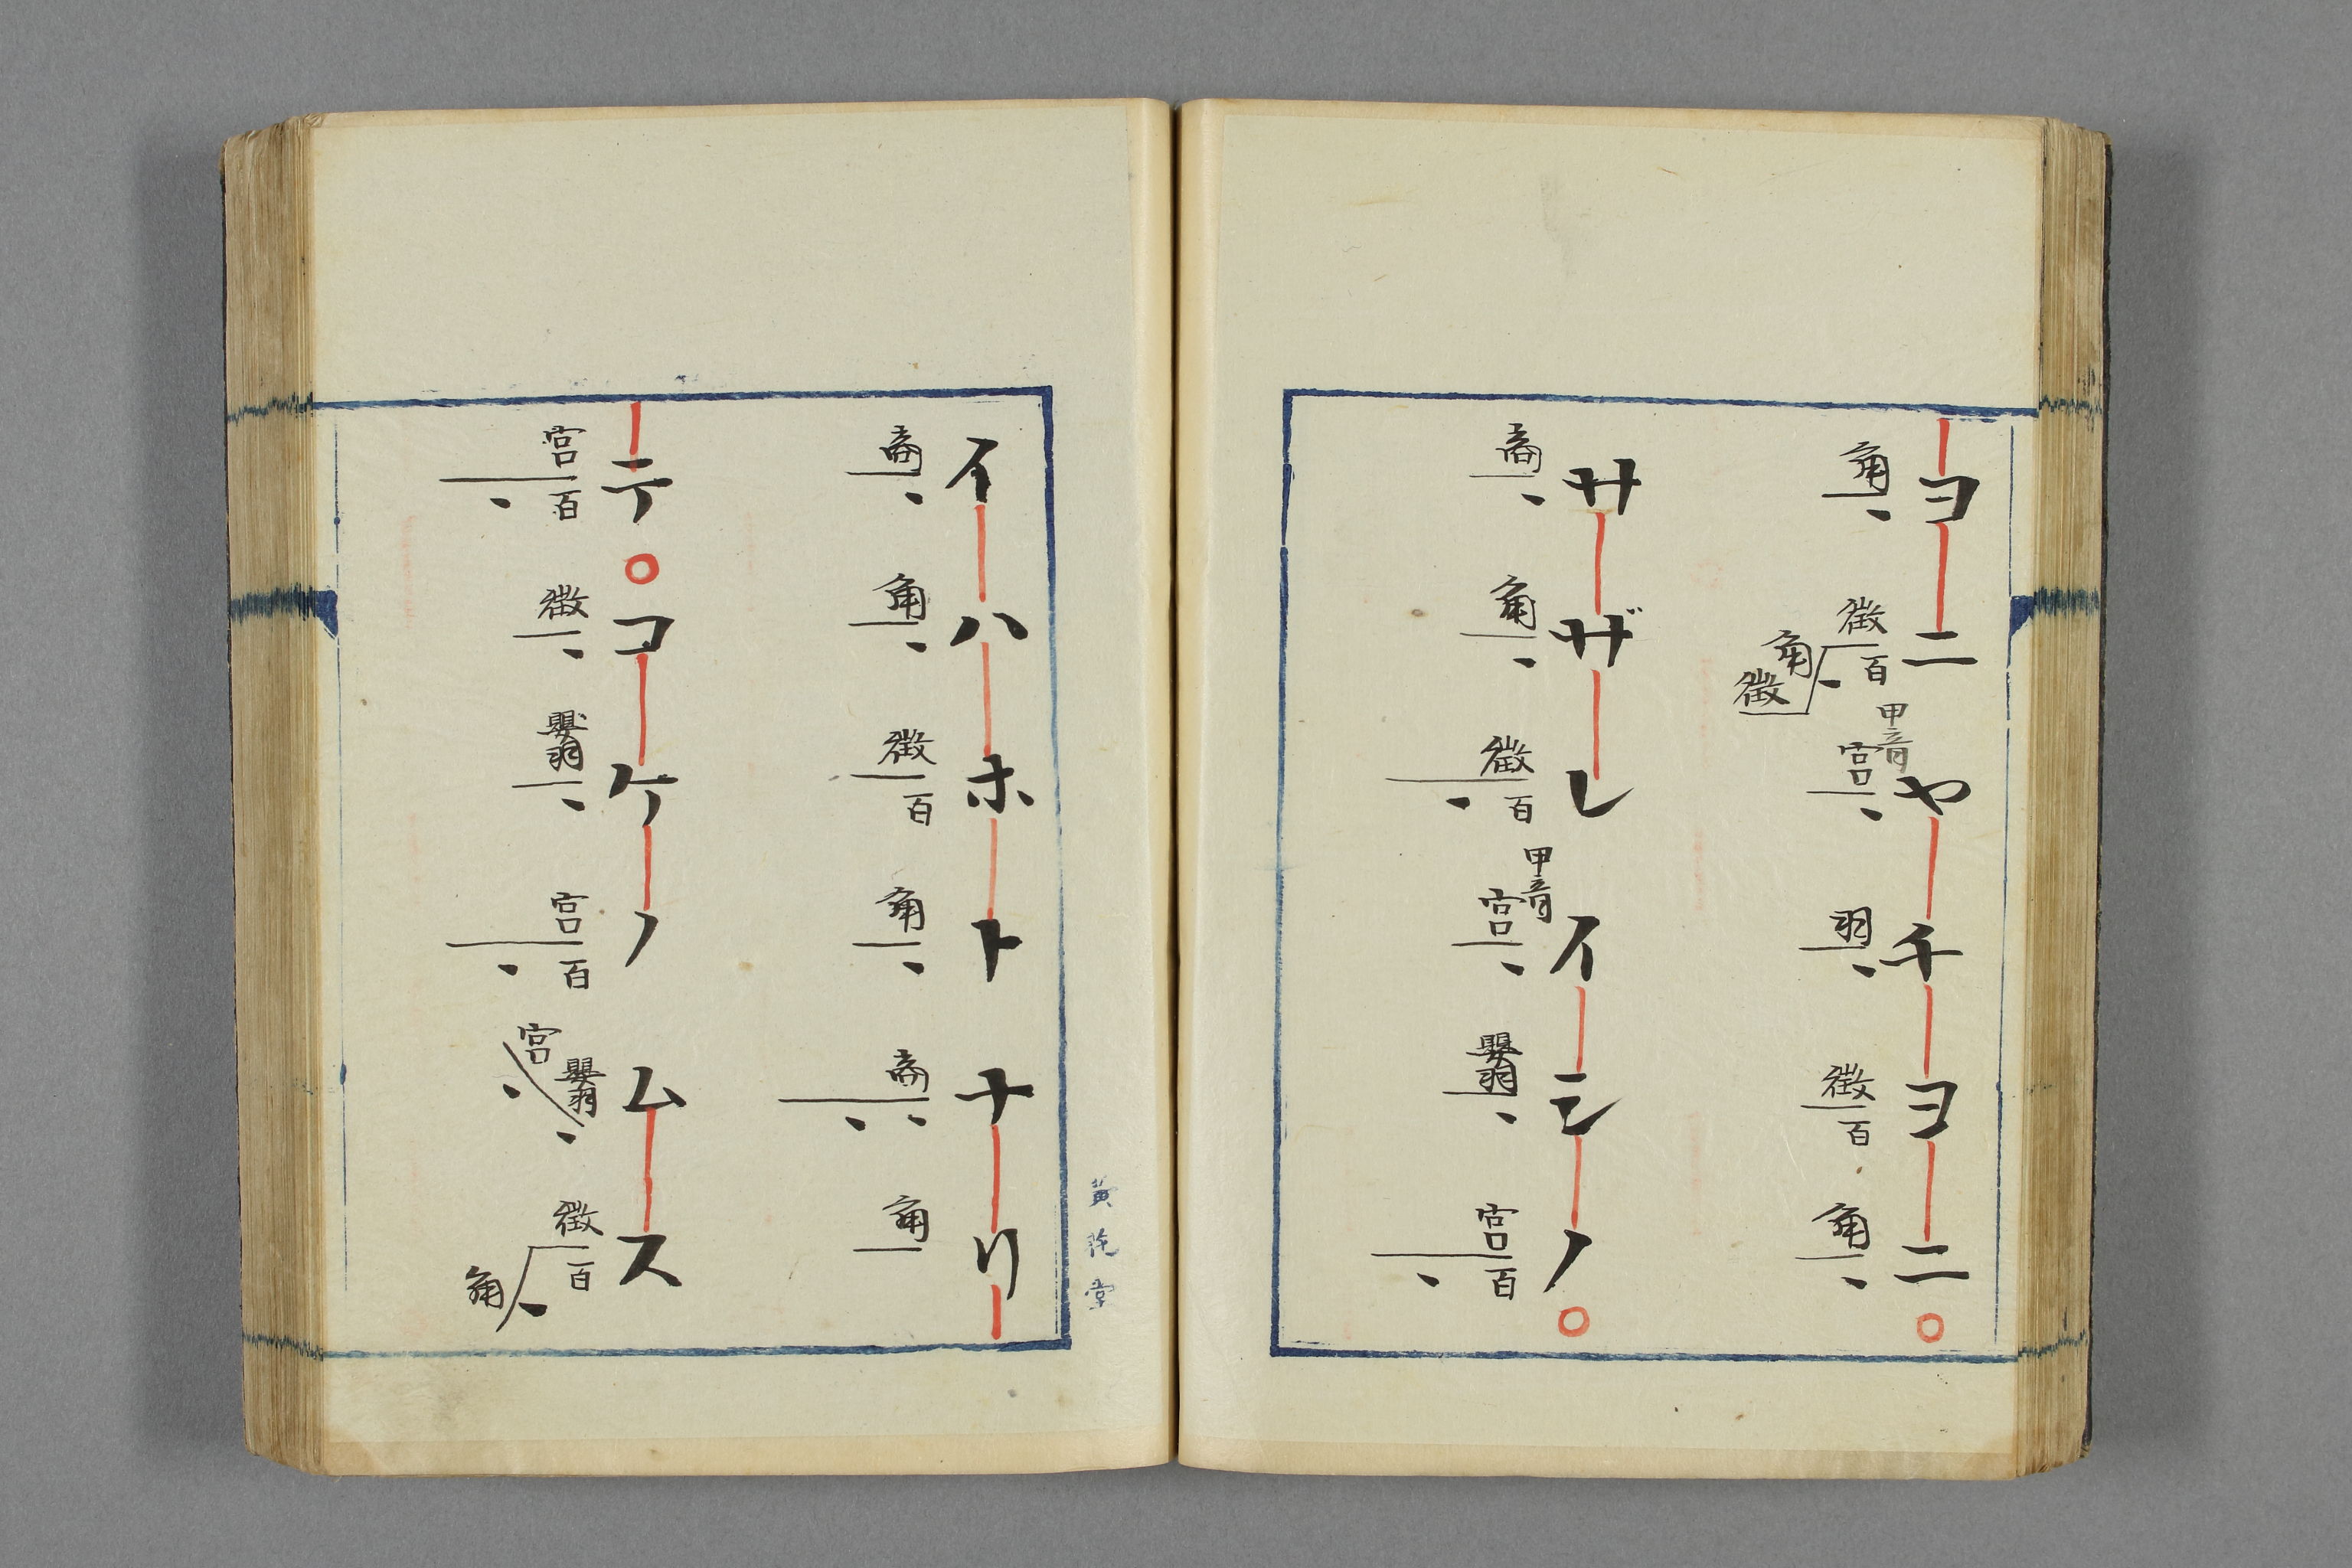 ヨニヤチヨニ○
角 徴百角徴 甲音宮 羽 徴百 角
サザレイシノ○
商 角 徴百 甲音宮 嬰羽 宮百
イハホトナリ
商 角 徴百 角 商 角
テ○コケノムス
宮百 徴 嬰羽 宮百 嬰羽宮 徴百角